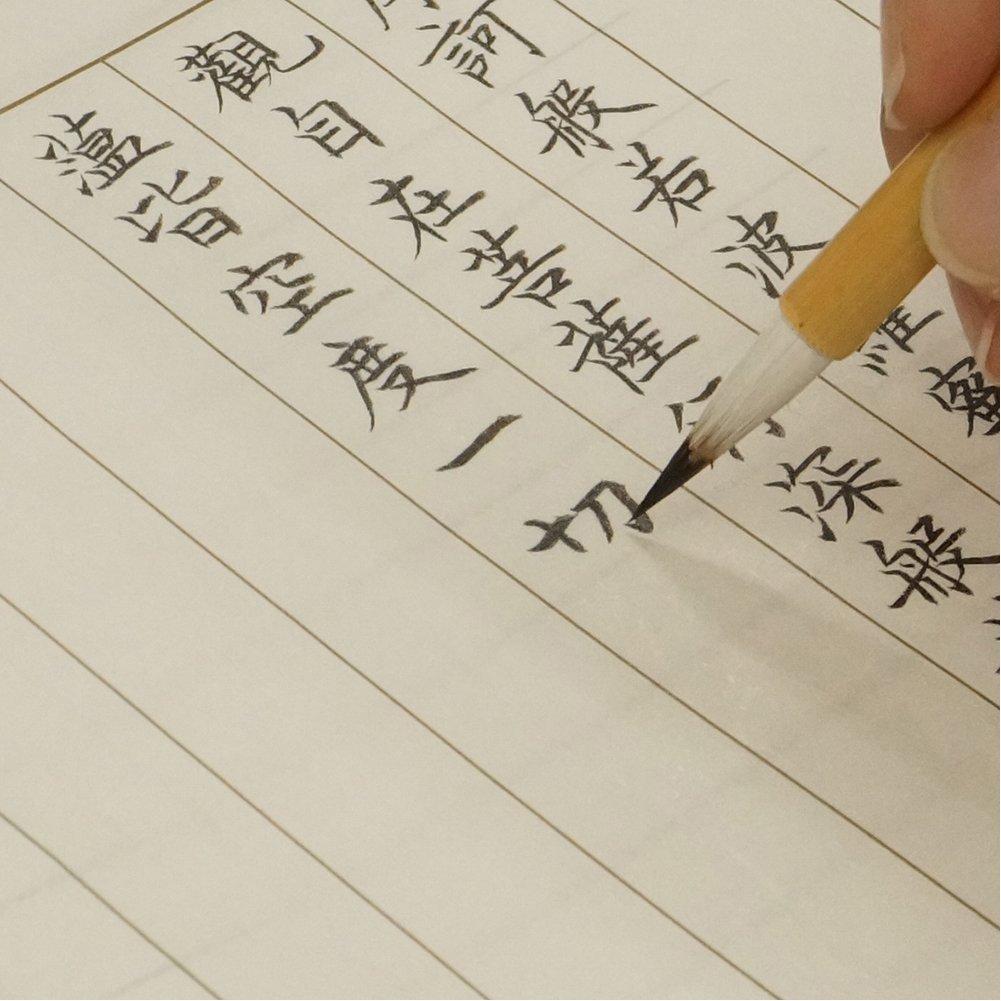 摩訶般若波羅蜜
觀自在菩薩行深般
蘊皆空度一切